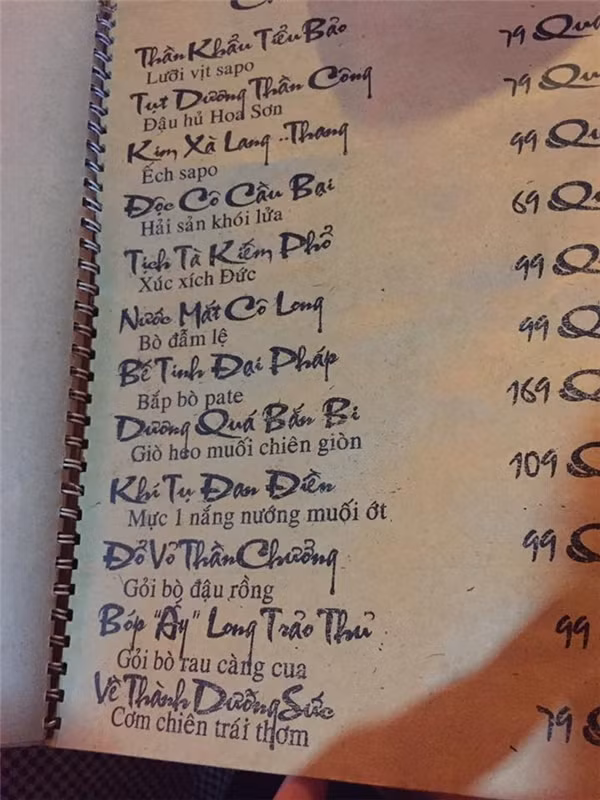 Thần Khẩu Tiểu Bảo 79
Lưỡi vịt sapo
Tụt Dương Thần Công 79
Đậu hủ Hoa Sơn
Kim Xà Lang ..Thang 99
Ếch sapo
Độc Cô Cầu Bại 69
Hải sản khói lửa
Tịch Tà Kiếm Phổ 99
Xúc xích Đức
Nước Mắt Cô Long 99
Bò đẫm lệ
Bế Tinh Đại Pháp 169
Bắp bò pate
Dương Quá Bắn Bi 109
Giò heo muối chiên giòn
Khí Tụ Đan Điền 99
Mực 1 nắng nướng muối ớt
Đỏ Vỏ Thần Chưởng 99
Gỏi bò đậu rồng
Bóp "Ấy" Long Trảo Thủ 79
Gỏi bò rau càng cua
Về Thành Dưỡng Sức
Cơm chiên trái thơm